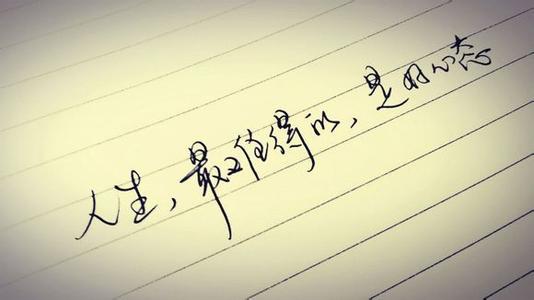 人生，最难得的，是好心态